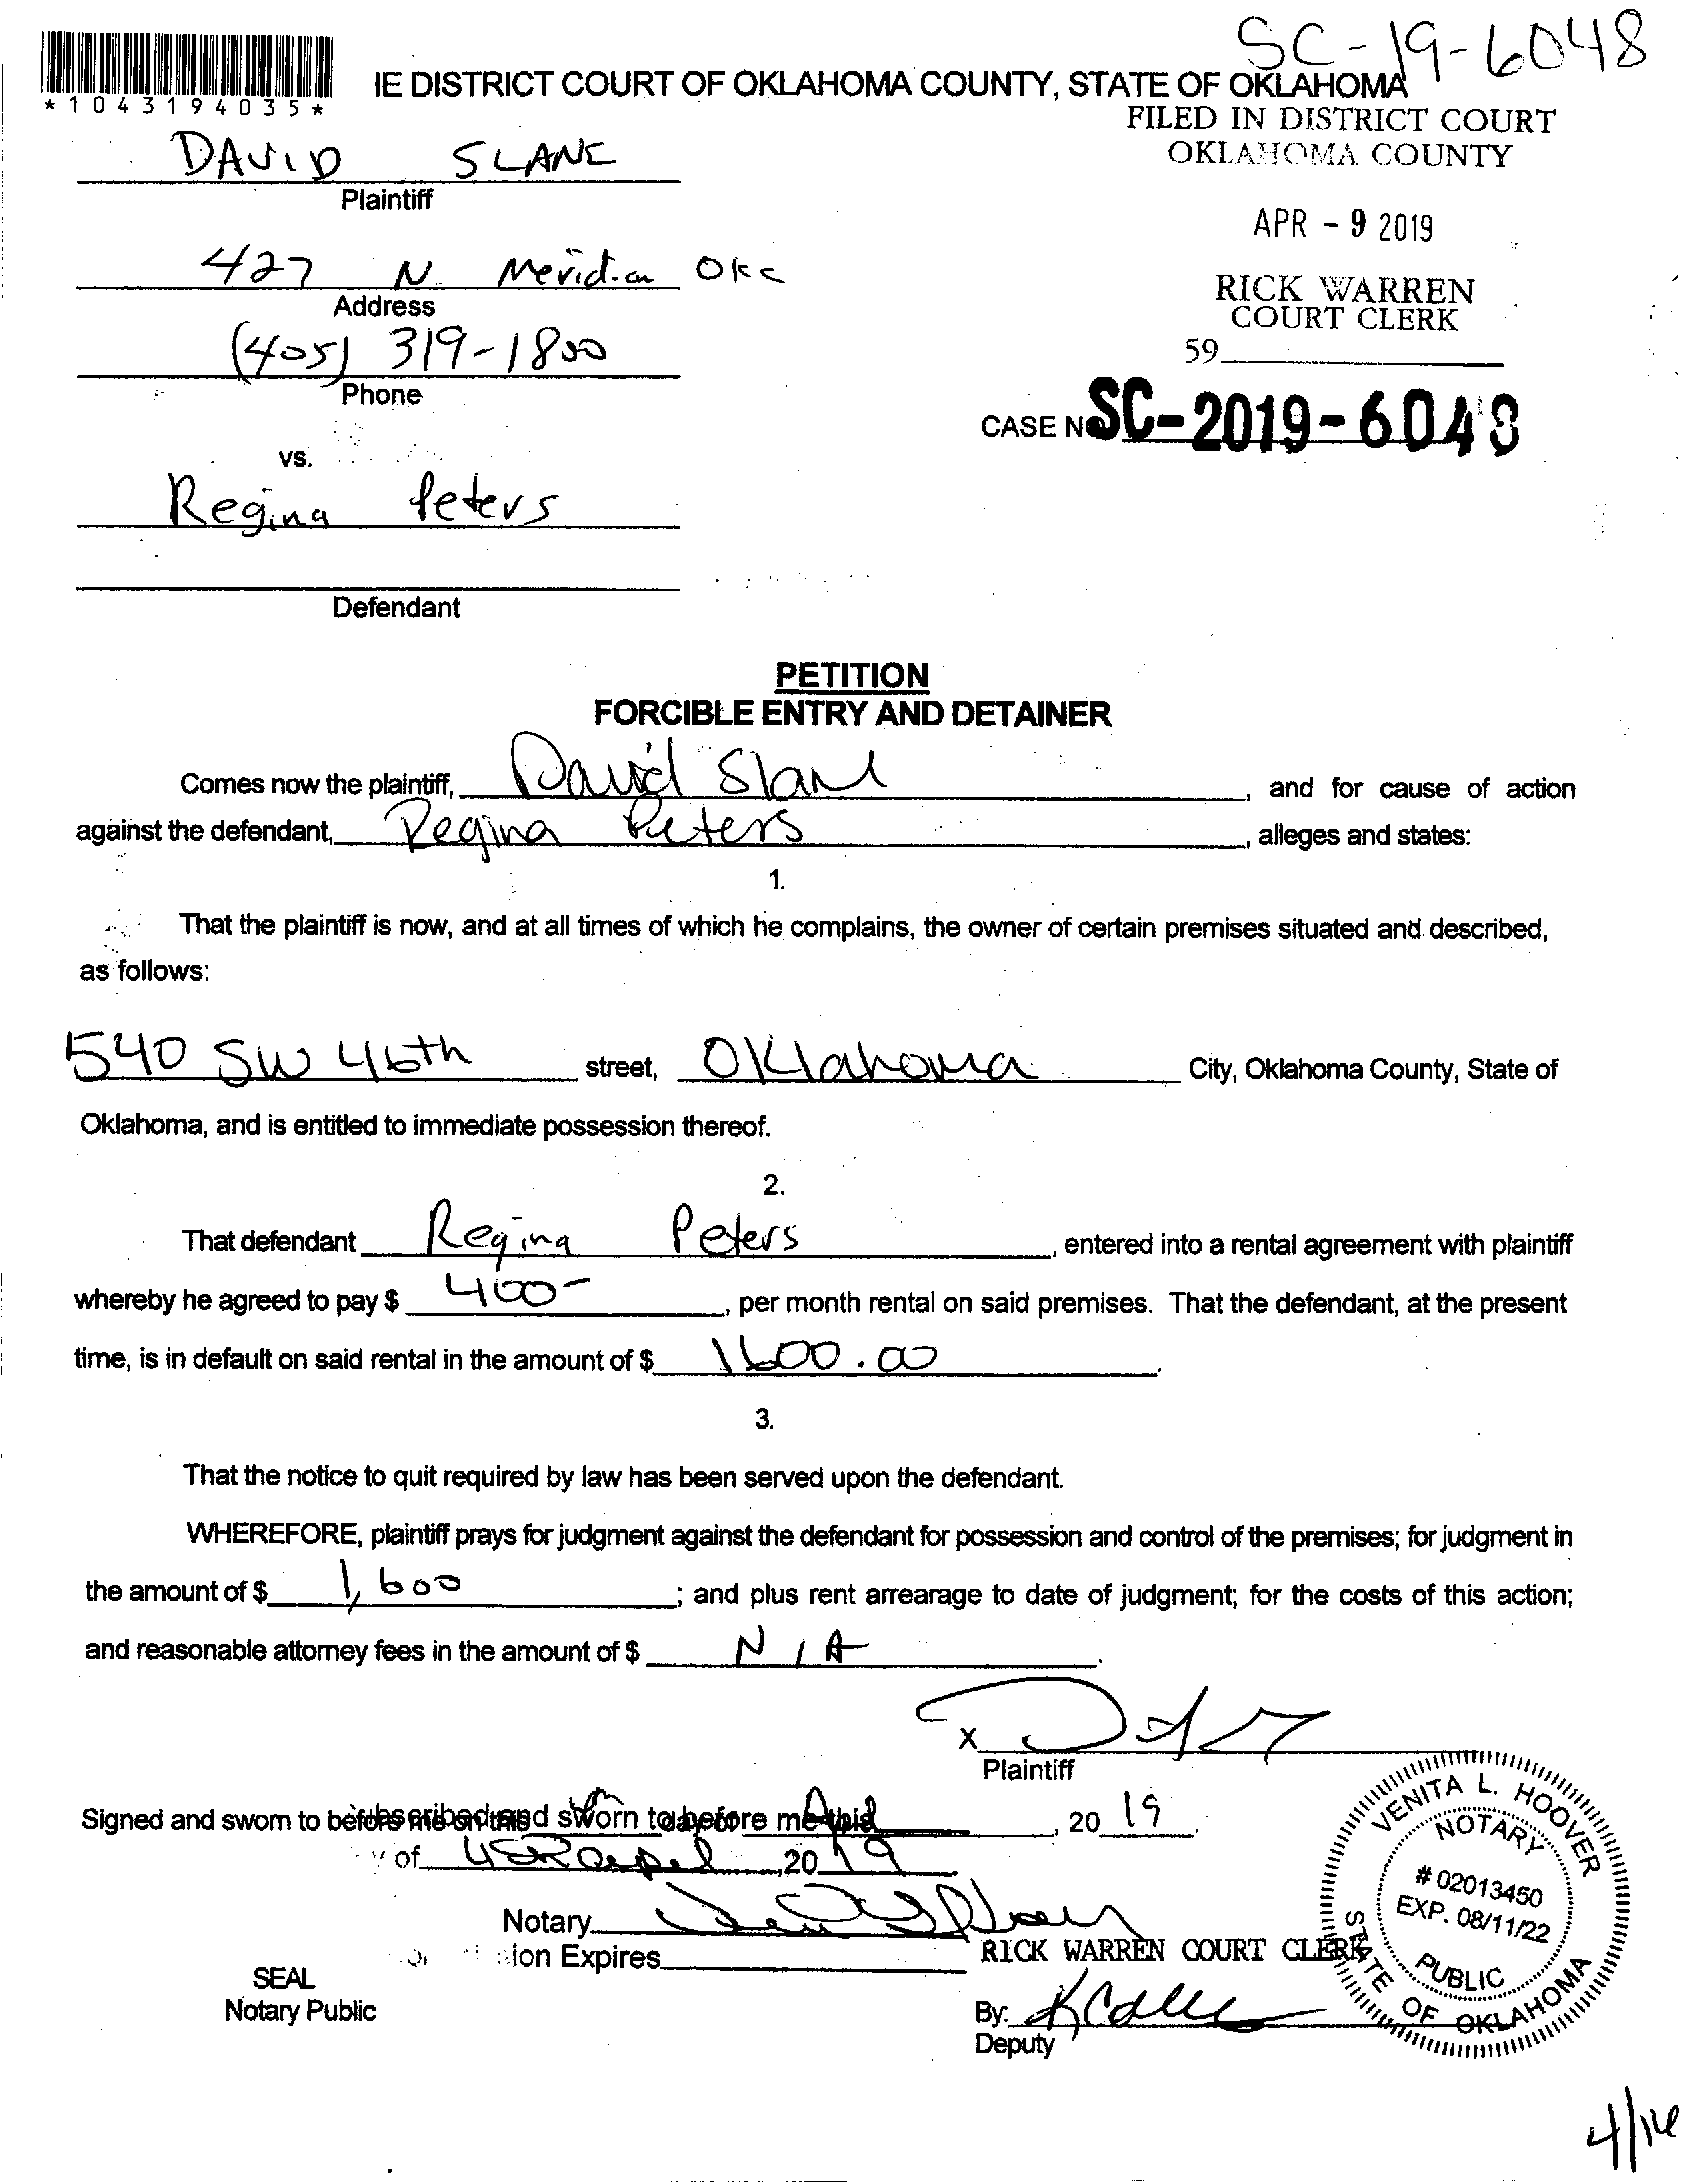 SC-19-6048
*1043194035*
IE DISTRICT COURT OF OKLAHOMA COUNTY, STATE OF OKLAHOMA
FILED IN DISTRICT COURT
OKLAHOMA COUNTY
DAVID SLANE
Plaintiff
APR - 9 2019
427 N. Meridian OKC
Address
RICK WARREN
COURT CLERK
(405) 319-1800
Phone
59
CASE N SC-2019-6048
vs.
Regina Peters
Defendant
PETITION
FORCIBLE ENTRY AND DETAINER
Comes now the plaintiff, David Slane, and for cause of action
against the defendant, Regina Peters, alleges and states:
1.
That the plaintiff is now, and at all times of which he complains, the owner of certain premises situated and described,
as follows:
540 SW 46th street, Oklahoma City, Oklahoma County, State of
Oklahoma, and is entitled to immediate possession thereof.
2.
That defendant Regina Peters, entered into a rental agreement with plaintiff
whereby he agreed to pay $ 400-, per month rental on said premises. That the defendant, at the present
time, is in default on said rental in the amount of $ 1600.00.
3.
That the notice to quit required by law has been served upon the defendant.
WHEREFORE, plaintiff prays for judgment against the defendant for possession and control of the premises; for judgment in
the amount of $ 1,600; and plus rent arrearage to date of judgment; for the costs of this action;
and reasonable attorney fees in the amount of $ N/A.
X
Plaintiff
Signed and sworn to before me on this sworn to before me this, 20 19.
of, 20 19
Notary
ion Expires
RICK WARREN COURT CLERK
SEAL
Notary Public
By:
Deputy
VENITA L. HOOVER
NOTARY
# 02013450
EXP. 08/11/22
PUBLIC
STATE OF OKLAHOMA